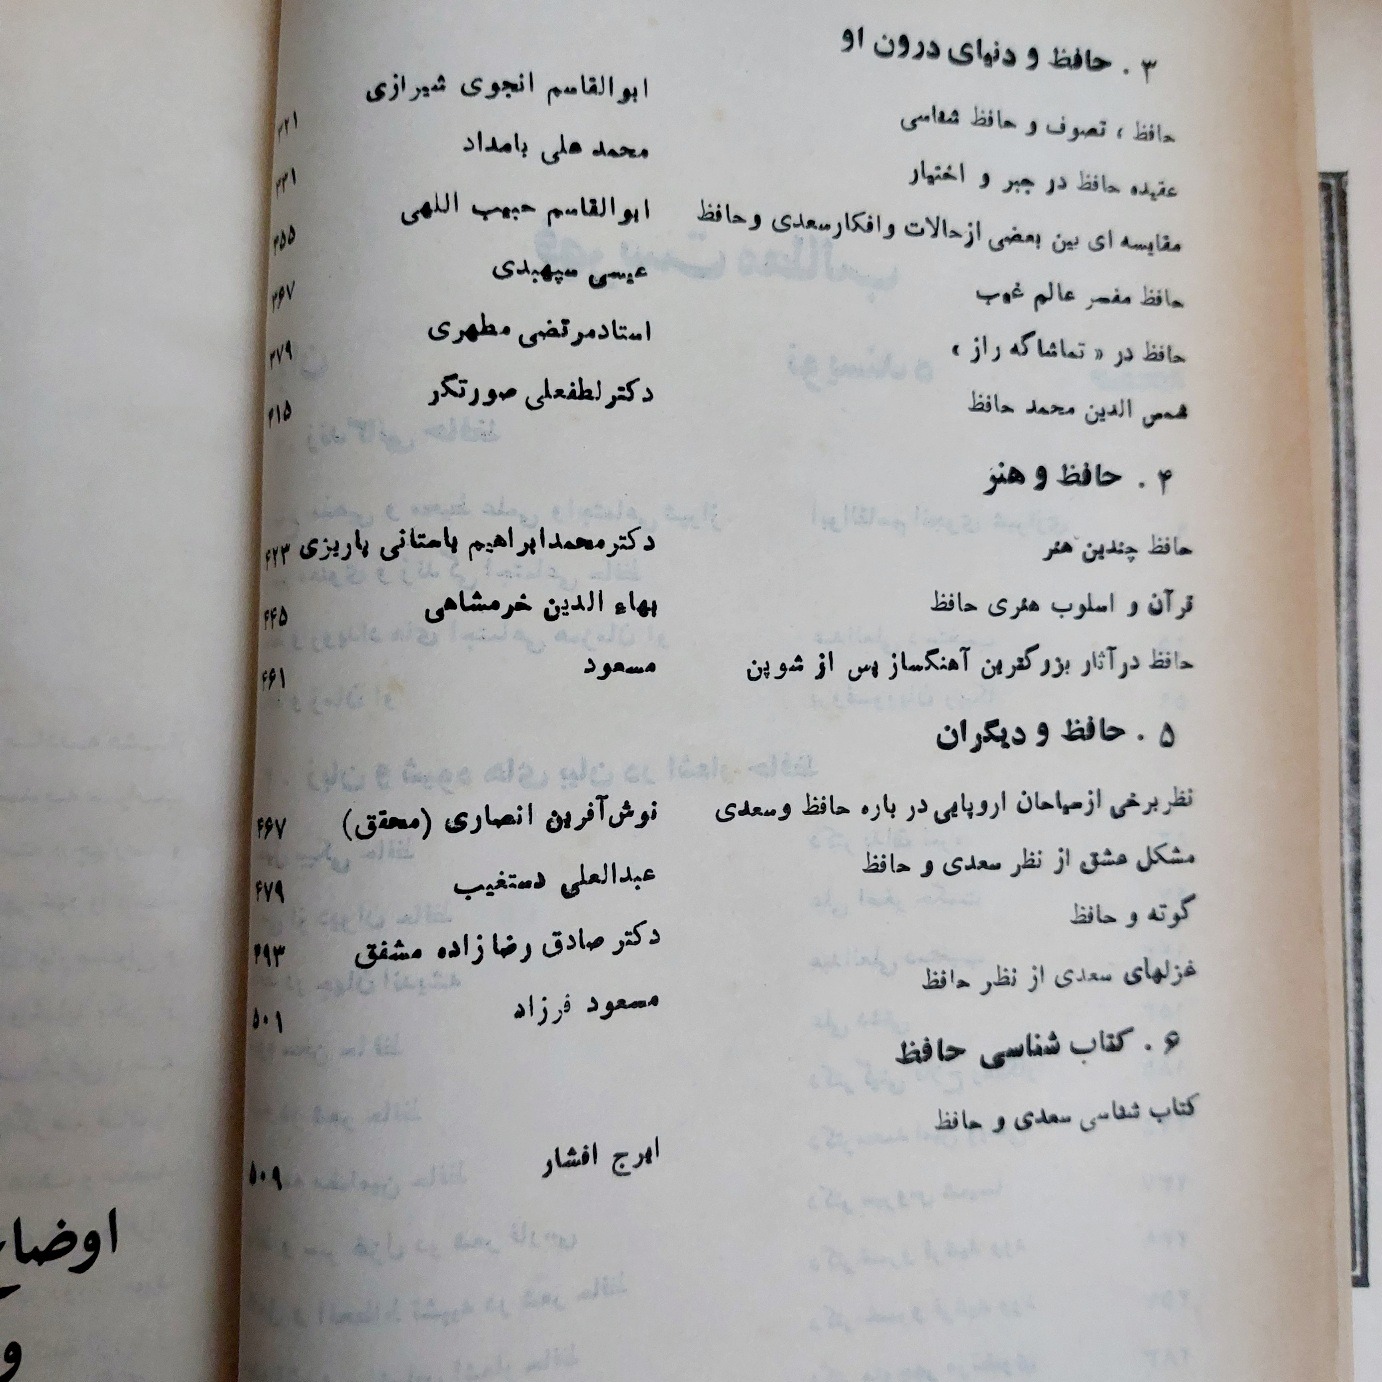 ۳ . حافظ و دنیای درون او
حافظ ، تصوف و حافظ شناسی ابوالقاسم انجوی شیرازی
عقیده حافظ در جبر و اختیار محمد علی بامداد
مقایسه ای بین بعضی ازحالات وافکارسعدی وحافظ ابوالقاسم حبیب اللهی
حافظ مفسر عالم غیب عیسی سپهبدی
حافظ در « تماشاگه راز » استادمرتضی مطهری
شمس الدین محمد حافظ دکترلطفعلی صورتگر
۴ . حافظ و هنر
حافظ چندین هنر دکترمحمدابراهیم باستانی پاریزی ۴۲۳
قرآن و اسلوب هنری حافظ بهاء الدین خرمشاهی ۴۴۵
حافظ درآثار بزرگترین آهنگساز پس از شوپن مسعود ۴۶۱
۵ . حافظ و دیگران
نظربرخی ازسیاحان اروپایی در باره حافظ وسعدی نوش‌آفرین انصاری (محقق) ۴۶۷
مشکل عشق از نظر سعدی و حافظ عبدالعلی دستغیب ۴۷۹
گوته و حافظ دکتر صادق رضا زاده مشفق ۴۹۳
غزلهای سعدی از نظر حافظ مسعود فرزاد ۵۰۱
۶ . کتاب شناسی حافظ
کتاب شناسی سعدی و حافظ ایرج افشار ۵۰۹
و